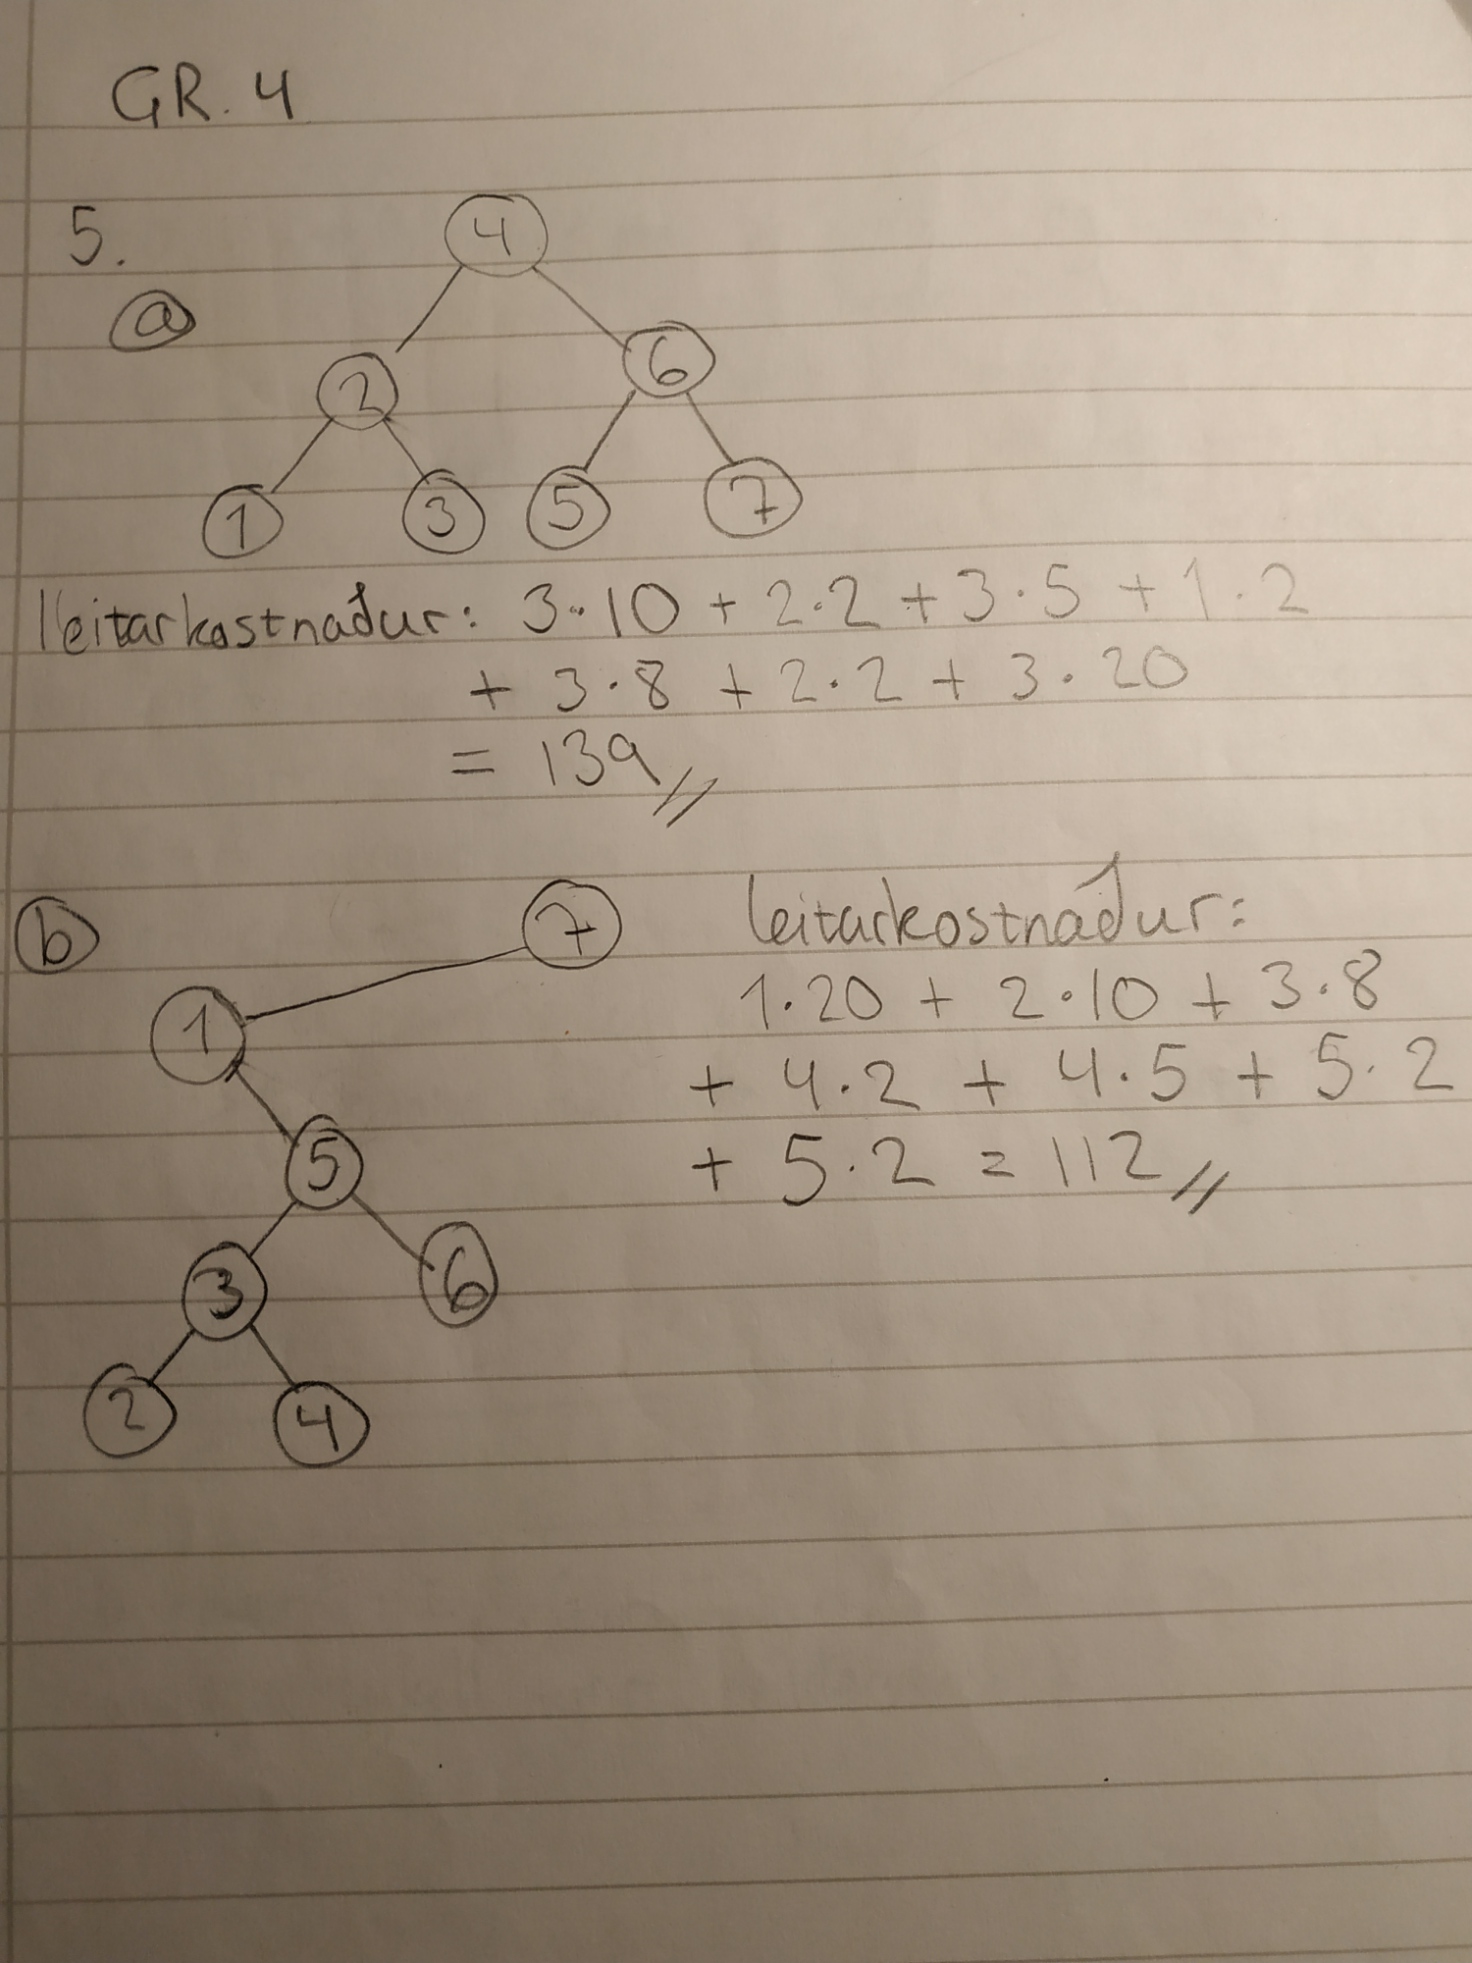 GR. 4
5.
a
4
2 6
1 3 5 7
leitarkostnaður: 3·10 + 2·2 + 3·5 + 1·2
+ 3·8 + 2·2 + 3·20
= 139
b
7
1
5
3 6
2 4
leitarkostnaður:
1·20 + 2·10 + 3·8
+ 4·2 + 4·5 + 5·2
+ 5·2 = 112